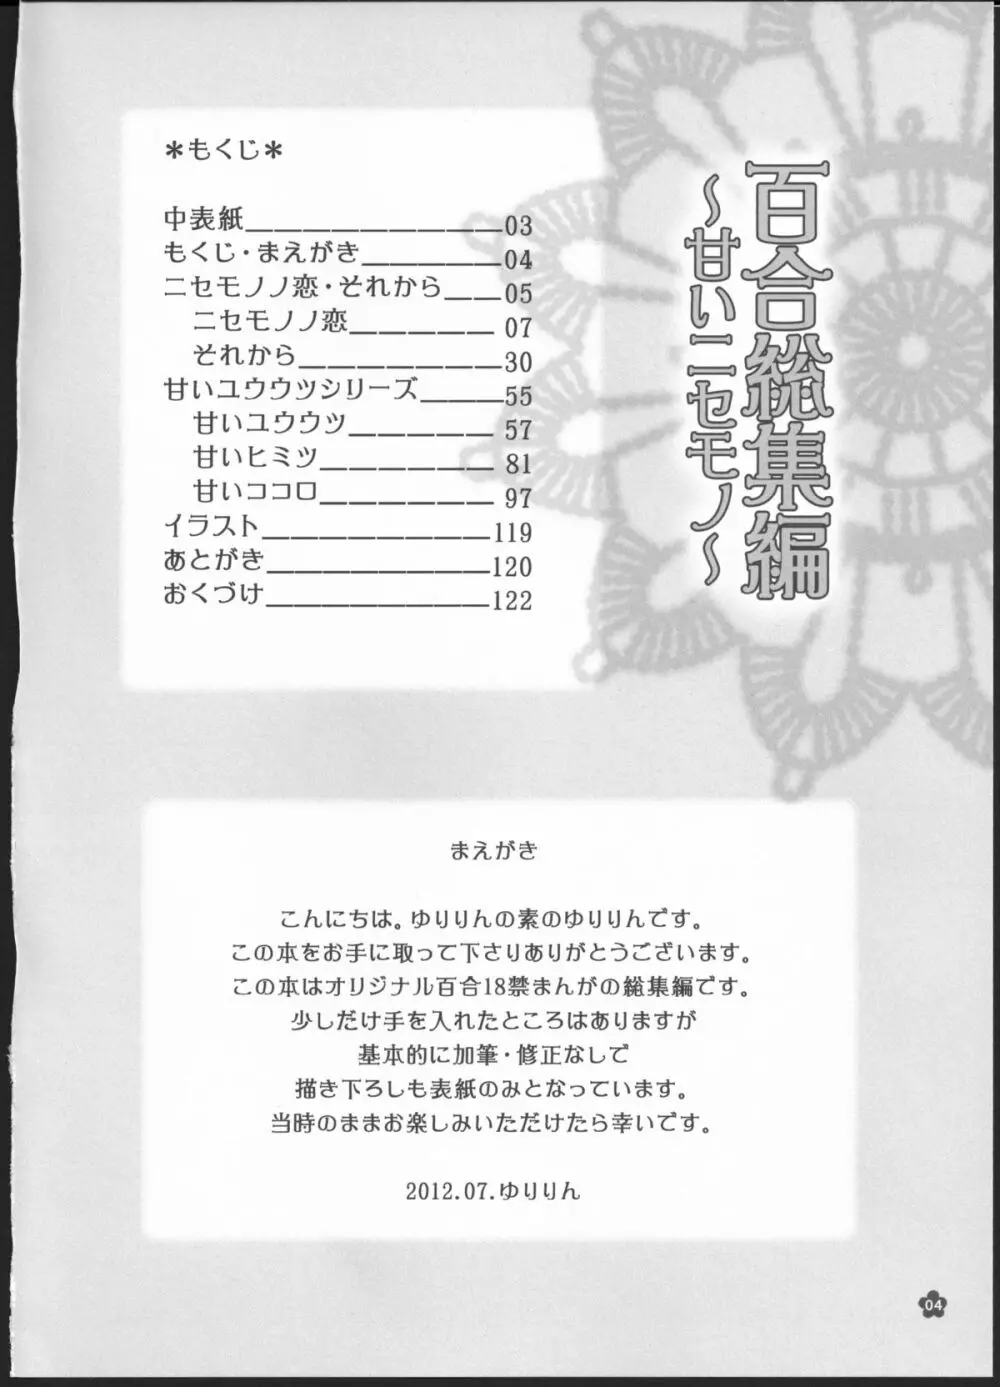 百合総集編
～甘いニセモノ～
＊もくじ＊
中表紙＿＿＿＿＿＿＿＿＿03
もくじ・まえがき＿＿＿＿＿04
ニセモノノ恋・それから＿＿05
ニセモノノ恋＿＿＿＿＿07
それから＿＿＿＿＿＿30
甘いユウウツシリーズ＿＿＿55
甘いユウウツ＿＿＿＿＿57
甘いヒミツ＿＿＿＿＿＿81
甘いココロ＿＿＿＿＿＿97
イラスト＿＿＿＿＿＿＿＿119
あとがき＿＿＿＿＿＿＿＿120
おくづけ＿＿＿＿＿＿＿＿122
まえがき
こんにちは。ゆりりんの素のゆりりんです。
この本をお手に取って下さりありがとうございます。
この本はオリジナル百合18禁まんがの総集編です。
少しだけ手を入れたところはありますが
基本的に加筆・修正なしで
描き下ろしも表紙のみとなっています。
当時のままお楽しみいただけたら幸いです。
2012.07.ゆりりん
04